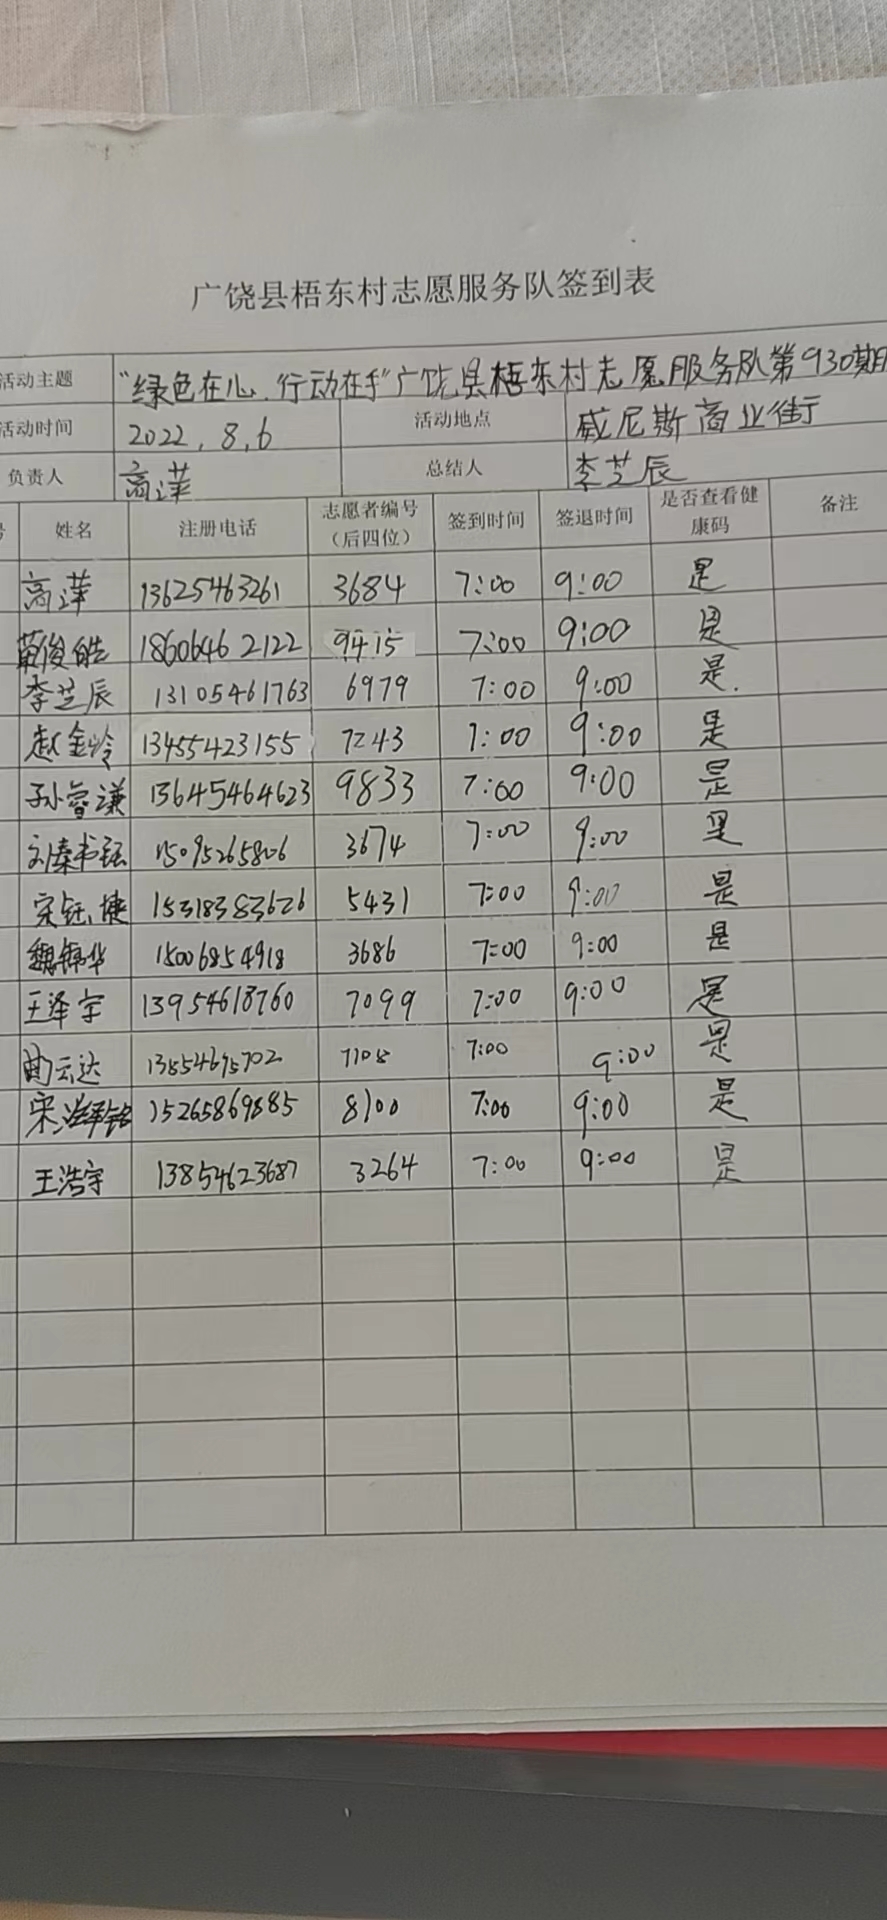 广饶县梧东村志愿服务队签到表
活动主题 "绿色在心.行动在手"广饶县梧东村志愿服务队第930期
活动时间 2022.8.6 活动地点 威尼斯商业街
负责人 高萍 总结人 李芝辰
姓名 注册电话 志愿者编号（后四位） 签到时间 签退时间 是否查看健康码 备注
高萍 13625463261 3684 7:00 9:00 是
俊皓 18606462122 9415 7:00 9:00 是
李芝辰 13105461763 6979 7:00 9:00 是.
赵金玲 13455423155 7243 7:00 9:00 是
孙睿谦 13645464623 9833 7:00 9:00 是
刘秦书 15095265806 3674 7:00 9:00 是
宋钰捷 15318383626 5431 7:00 9:00 是
魏锦华 15006854918 3686 7:00 9:00 是
王泽宇 13954618760 7099 7:00 9:00 是
曲云达 13854695702 7108 7:00 9:00 是
宋 铭 15265869885 8100 7:00 9:00 是
王浩宇 13854623687 3264 7:00 9:00 是